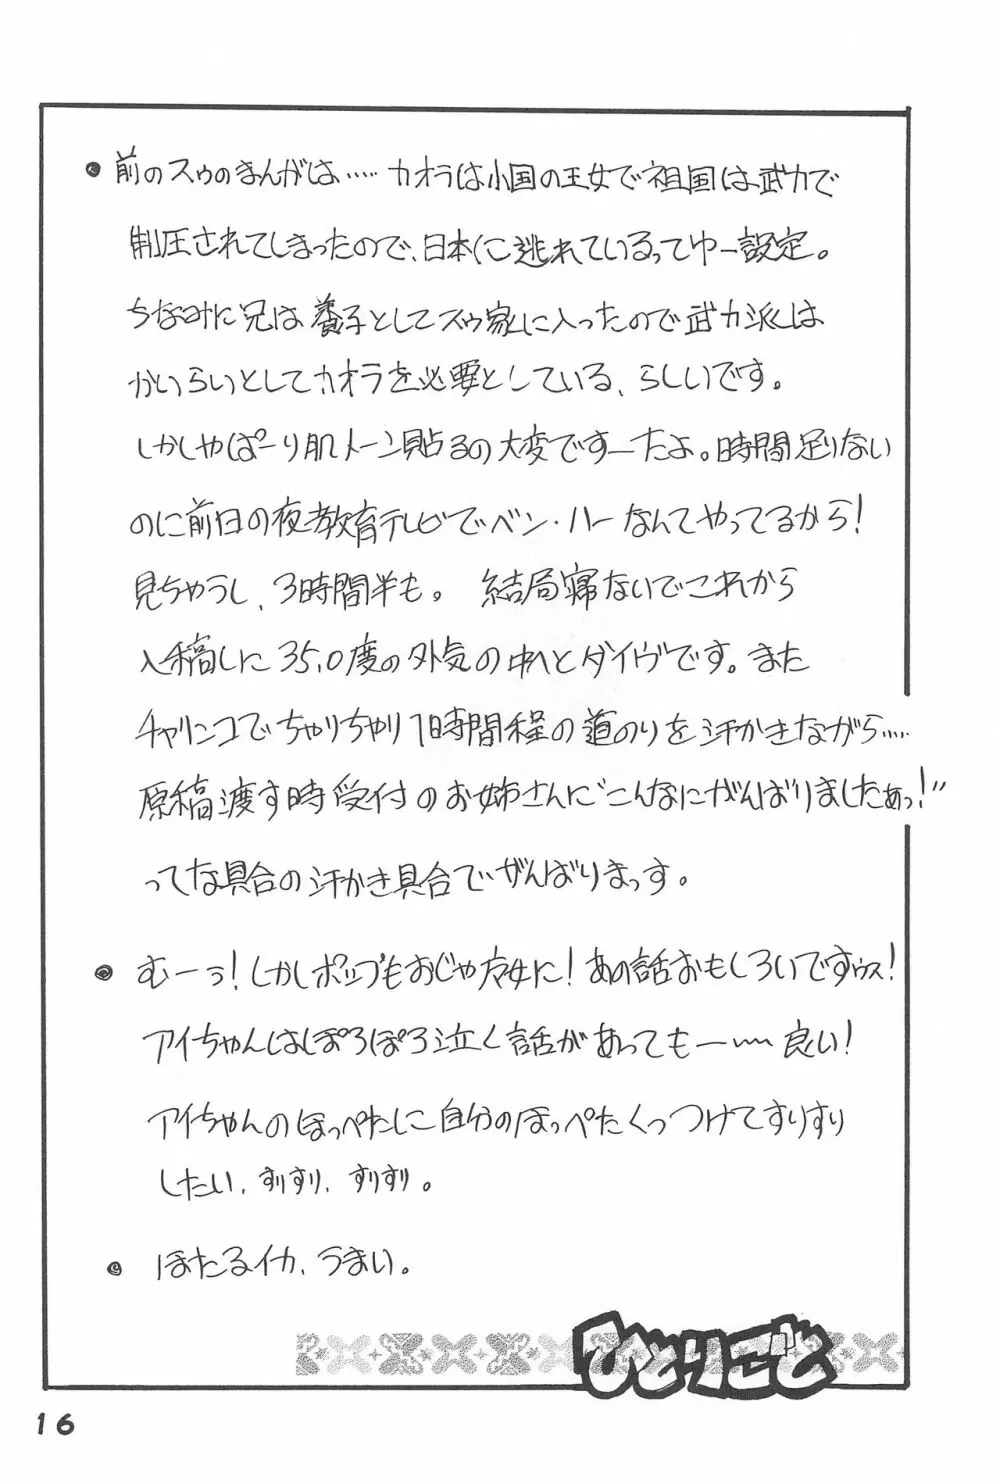 ●前のスゥのまんがは‥‥‥カオラは小国の王女で祖国は武力で
制圧されてしまったので、日本に逃れているってゆー設定。
ちなみに兄は養子としてスゥ家に入ったので武力派は
かいらいとしてカオラを必要としている、らしいです。
しかしやぱーり肌トーン貼るの大変ですーたよ。時間足りない
のに前日の夜教育テレビでベン・ハーなんてやってるから！
見ちゃうし、3時間半も。結局寝ないでこれから
入稿しに35.0度の外気の中へとダイヴです。また
チャリンコでちゃりちゃり1時間程の道のりを汗かきながら‥‥‥
原稿渡す時受付のお姉さんに"こんなにがんばりましたぁっ！"
ってな具合の汗かき具合でがんばりまっす。
●むーぅ！しかしポップもおじゃ魔女に！あの話おもしろいですぅ！
アイちゃんはぽろぽろ泣く話があってもー〰良い！
アイちゃんのほっぺたに自分のほっぺたくっつけてすりすり
したい、すりすり、すりすり。
●ほたるイカ、うまい。
ひとりごと
16